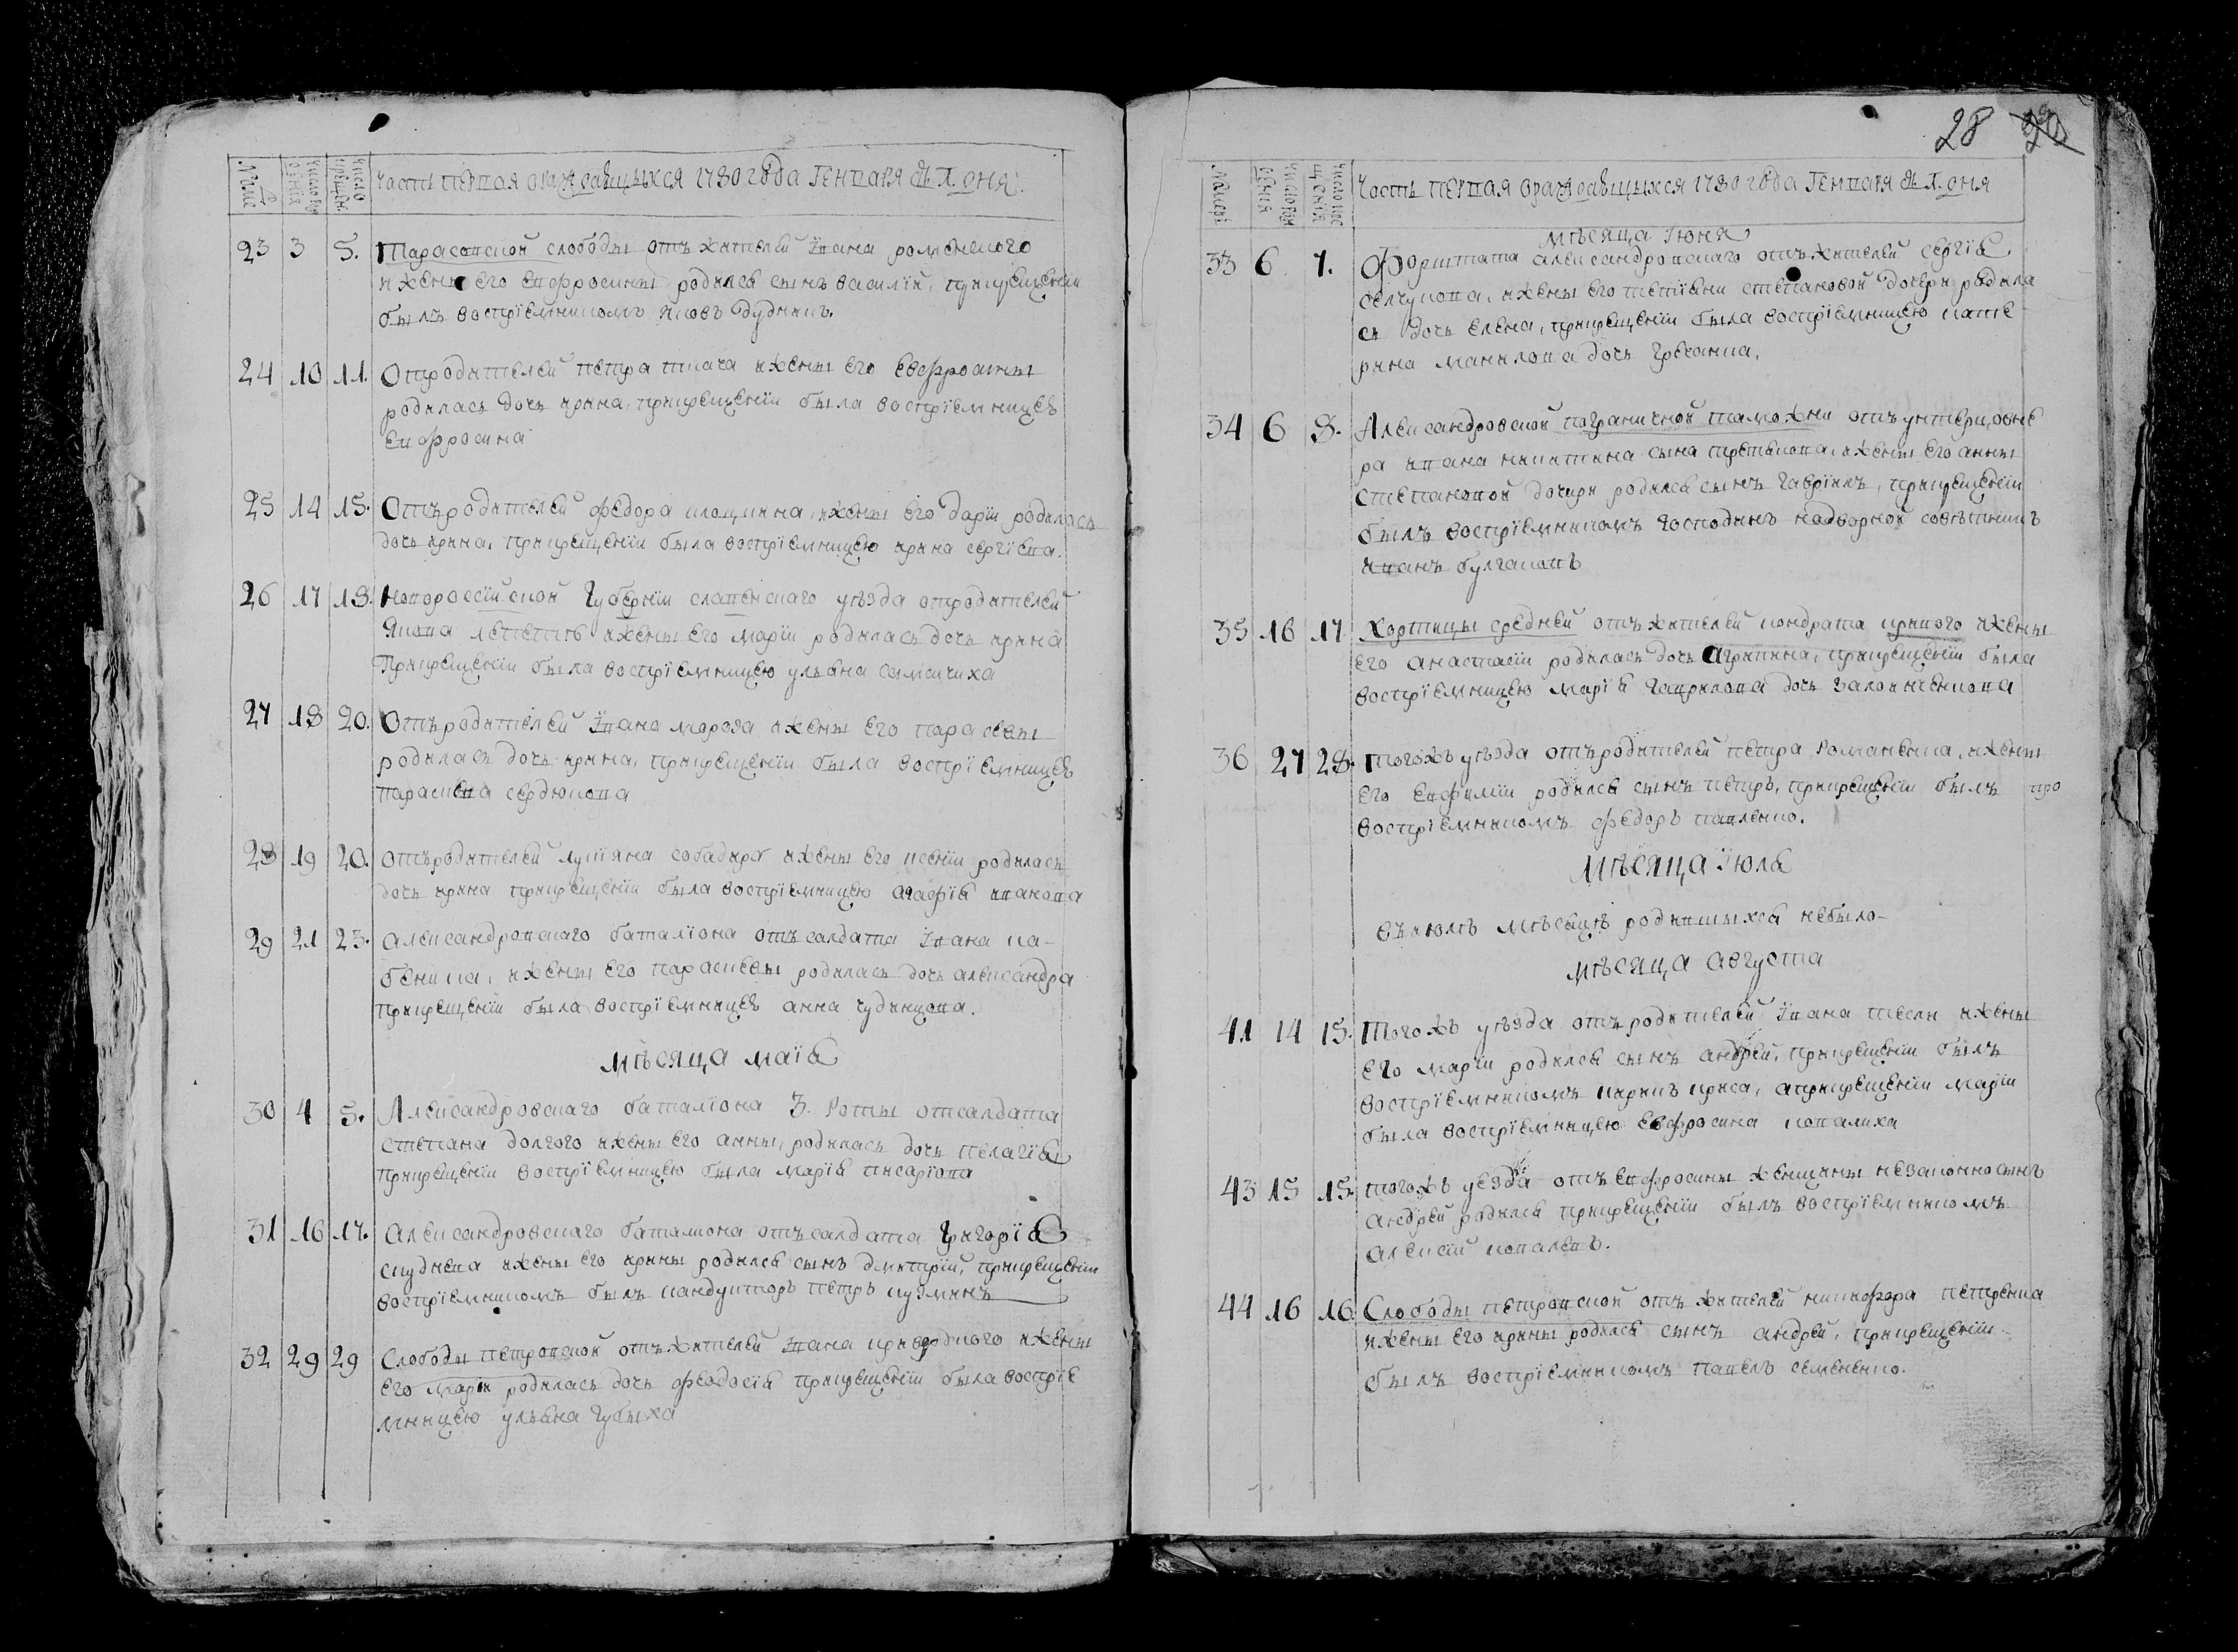 Номеръ
число рожденія
число крещенія
Часть первая ораждающихся 1780 года Генваря съ 1. дня.
23 3 5. Тарасовской слободы отъ жителей Iвана роменского
ижены его Евфросины родился сынъ василій, прикрещеніи
былъ воспріемникомъ яковъ Дудникъ.
24 10 11. Отродителей петра ткача ижены его Евфросины
родилась дочь ирина, прикрещеніи была воспріемницею
Евфросина
25 14 15. Отъродителей федора ижены его дарiи родилась
дочь ирина, прикрещеніи была воспріемницею ирина сергіева.
26 17 18. Новороссійской Губерніи славенскаго уѣзда отродителей
Якова ижены его Маріи родилась дочь ирина
Прикрещеніи была воспріемницею ульяна самсичиха
27 18 20. Отъродителей Iвана мороза ижены его парасевы
родилась дочь ирина, прикрещеніи была воспріемницею
парасква сердюкова
28 19 20. отъродителей лукіяна собадыря ижены его ксеніи родилась
дочь ирина прикрещеніи была воспріемницею агафія иванова
29 21 23. александровскаго баталіона отъ салдата Iвана ка-
бенина, ижены его параскевы родилась дочь александра
прикрещеніи была воспріемницею анна чудинцова.
мѣсяца маія
30 4 5. Александровскаго баталіона 3. роты отсалдата
степана долгого ижены его анны, родилась дочь пелагія
прикрещеніи воспріемницею была марія писаріова
31 16 17. Александровскаго баталиона отъ салдата григорія
скуднева ижены его ирины родился сынъ дмитрій, прикрещеніи
воспріемникомъ былъ кандукторъ петръ кузминъ
32 29 29 Слободы петровской отъ жителей Iвана ижены
его маріи родилась дочь феодосія прикрещеніи была воспріе
мницею ульяна губиха
28
Номеръ
число рожденія
число крещенія
Часть первая ораждающихся 1780 года Генваря съ 1. дня
мѣсяца Iюня
33 6 7. Форштата александровскаго отъ жителей сергія
селчукова, ижены его степановой дочери родила
сь дочь елена, прикрещеніи была воспріемницею кате
рина манилова дочь гречанка.
34 6 8. Александровской пограничной таможни отъ унтерцолне
ра ивана никитина сына третякова, ижены его анны
степановой дочери родился сынъ гавріилъ, прикрещеніи
былъ воспріемникомъ господинъ надворной совѣтникъ
иванъ булгаковъ
35 16 17 Хортицы средней отъ жителей кондрата кривого ижены
его анастасіи родилась дочь агрипина, прикрещеніи была
воспріемницею марія гаврилова дочь
36 27 28. тогожъ уѣзда отъродителей петра романенка, ижены
его Евфиміи родился сынъ петръ, прикрещеніи былъ про
воспріемникомъ федоръ павленко.
Мѣсяца Iюля
въ июлѣ мѣсяцѣ родившихся небыло-
мѣсяца августа
41 14 15. Тогожъ уѣзда отъ родителей Iвана тесли ижены
его маріи родился сынъ андрей, прикрещеніи былъ
воспріемникомъ кириkъ криса, априкрещеніи маріи
была воспріемницею Евфросина ковалиха
43 15 15. тогожъ уезда отъ Евфросины женщины незаконно сынъ
андрей родился прикрещеніи былъ воспріемникомъ
алексій ковалевъ.
44 16 16 Слободы петровской отъ жителей никифора петренка
ижены его ирины родился сынъ андрей, прикрещеніи
былъ воспріемникомъ павелъ семененко.